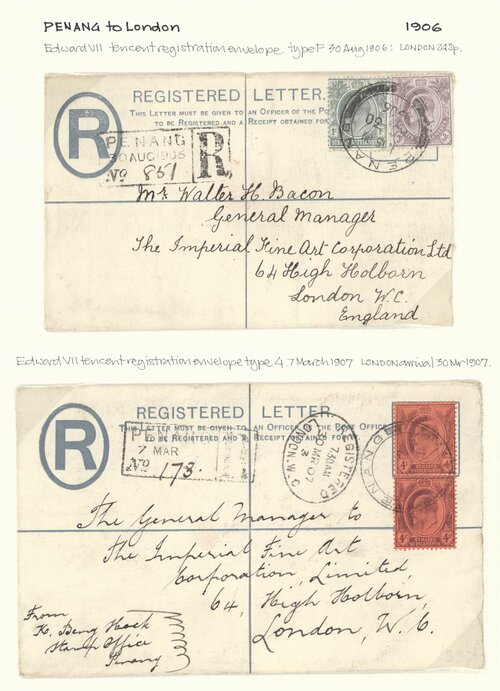 PENANG to London 1906
Edward VII tencent registration envelope type F 30 Aug 1906: LONDON 24 Sp.
REGISTERED LETTER.
THIS LETTER MUST BE GIVEN TO AN OFFICER OF THE PO
TO BE REGISTERED AND A RECEIPT OBTAINED FOR
R
PENANG
30 AUG 1906
No 851
R
PENANG
Mr Walter H. Bacon
General Manager
The Imperial Fine Art Corporation Ltd
64 High Holborn
London W.C.
England
Edward VII tencent registration envelope type 4. 7 March 1907 LONDON arrival 30 Mr 1907.
REGISTERED LETTER.
THIS LETTER MUST BE GIVEN TO AN OFFICER OF THE POST OFFICE
TO BE REGISTERED AND A RECEIPT OBTAINED
R
7 MAR
No 173.
REGISTERED
7.30 AM
30 MR 07
3
LONDON. W.C.
PENANG
The General Manager to
The Imperial Fine Art
Corporation, Limited,
64, High Holborn,
London, W. C.
From
K. Beng Hock
Stamp Office
Penang